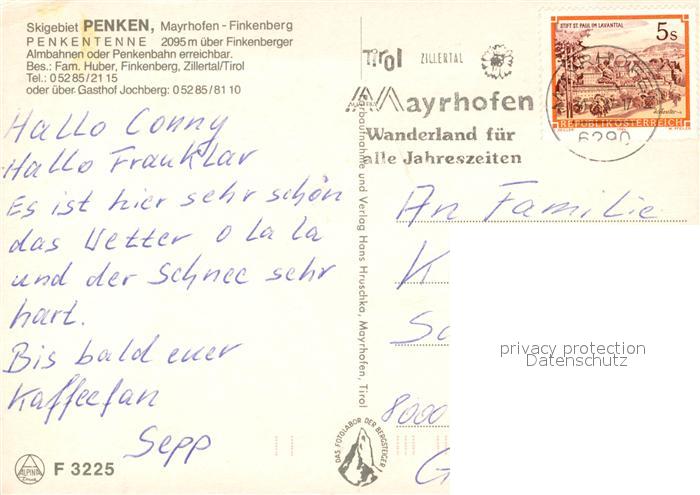 Skigebiet PENKEN, Mayrhofen - Finkenberg
PENKENTENNE 2095 m über Finkenberger
Almbahnen oder Penkenbahn erreichbar.
Bes.: Fam. Huber, Finkenberg, Zillertal/Tirol
Tel.: 0 52 85 / 21 15
oder über Gasthof Jochberg: 0 52 85 / 81 10
Hallo Conny
Hallo Frau Klar
Es ist hier sehr schön
das Wetter o la la
und der Schnee sehr
hart.
Bis bald euer
Kaffeefan
Sepp
ALPINA
F 3225
Farbaufnahme und Verlag Hans Hruschka, Mayrhofen, Tirol
DAS FOTOLABOR DER BERGSTEIGER
Tirol ZILLERTAL
Mayrhofen
Wanderland für
alle Jahreszeiten
6290
STIFT ST. PAUL IM LAVANTTAL
5s
REPUBLIK ÖSTERREICH
An Familie
K
8000
G
privacy protection
Datenschutz